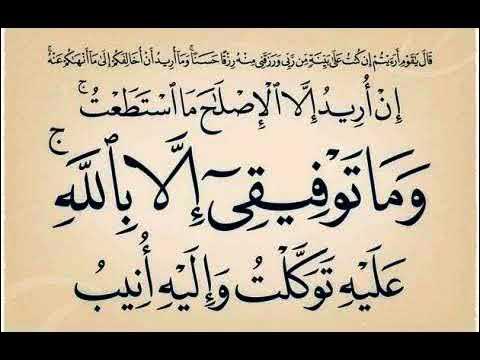 قَالَ يَٰقَوْمِ أَرَءَيْتُمْ إِن كُنتُ عَلَىٰ بَيِّنَةٍ مِّن رَّبِّى وَرَزَقَنِى مِنْهُ رِزْقًا حَسَنًا ۚ وَمَآ أُرِيدُ أَنْ أُخَالِفَكُمْ إِلَىٰ مَآ أَنْهَىٰكُمْ عَنْهُ ۚ
إِنْ أُرِيدُ إِلَّا ٱلْإِصْلَٰحَ مَا ٱسْتَطَعْتُ ۚ
وَمَا تَوْفِيقِىٓ إِلَّا بِٱللَّهِ ۚ
عَلَيْهِ تَوَكَّلْتُ وَإِلَيْهِ أُنِيبُ